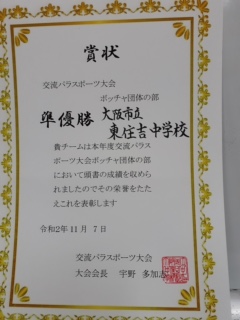 賞状
交流パラスポーツ大会
ボッチャ団体の部
準優勝 大阪市立
東住吉中学校
貴チームは本年度交流パラス
ポーツ大会ボッチャ団体の部
において頭書の成績を収めら
れましたのでその栄誉をたた
えこれを表彰します
令和2年11月7日
交流パラスポーツ大会
大会会長 宇野 多加